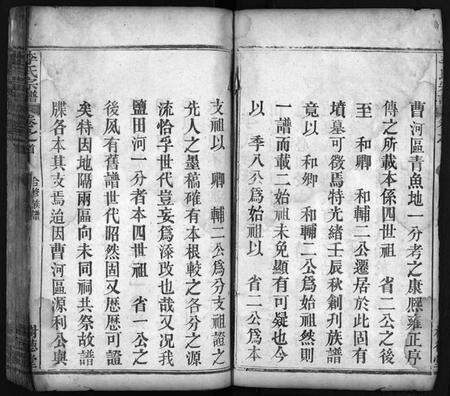 曹河區青魚地一分考之康熙雍正序
傳之所載本係四世祖 省二公之後
至 和卿 和輔二公遷居於此固有
墳墓可徵焉特光緒壬辰秋創刋族譜
竟以 和卿 和輔二公爲始祖然則
一譜而載二始祖未免顯有可疑也今
以 季八公爲始祖以 省二公爲本
支祖以 卿 輔二公爲各分支祖證之
先人之墨稿確有本根較之各分之源
流恰孚世代豈妄爲添攷也哉又况我
鹽田河一分者本四世祖 省一公之
後夙有舊譜世代昭然固又歷歷可證
矣特因地隔兩區向未同祠共祭故譜
牒各本其支焉迨因曹河區源利公與
李氏宗譜
卷之首
合修族譜